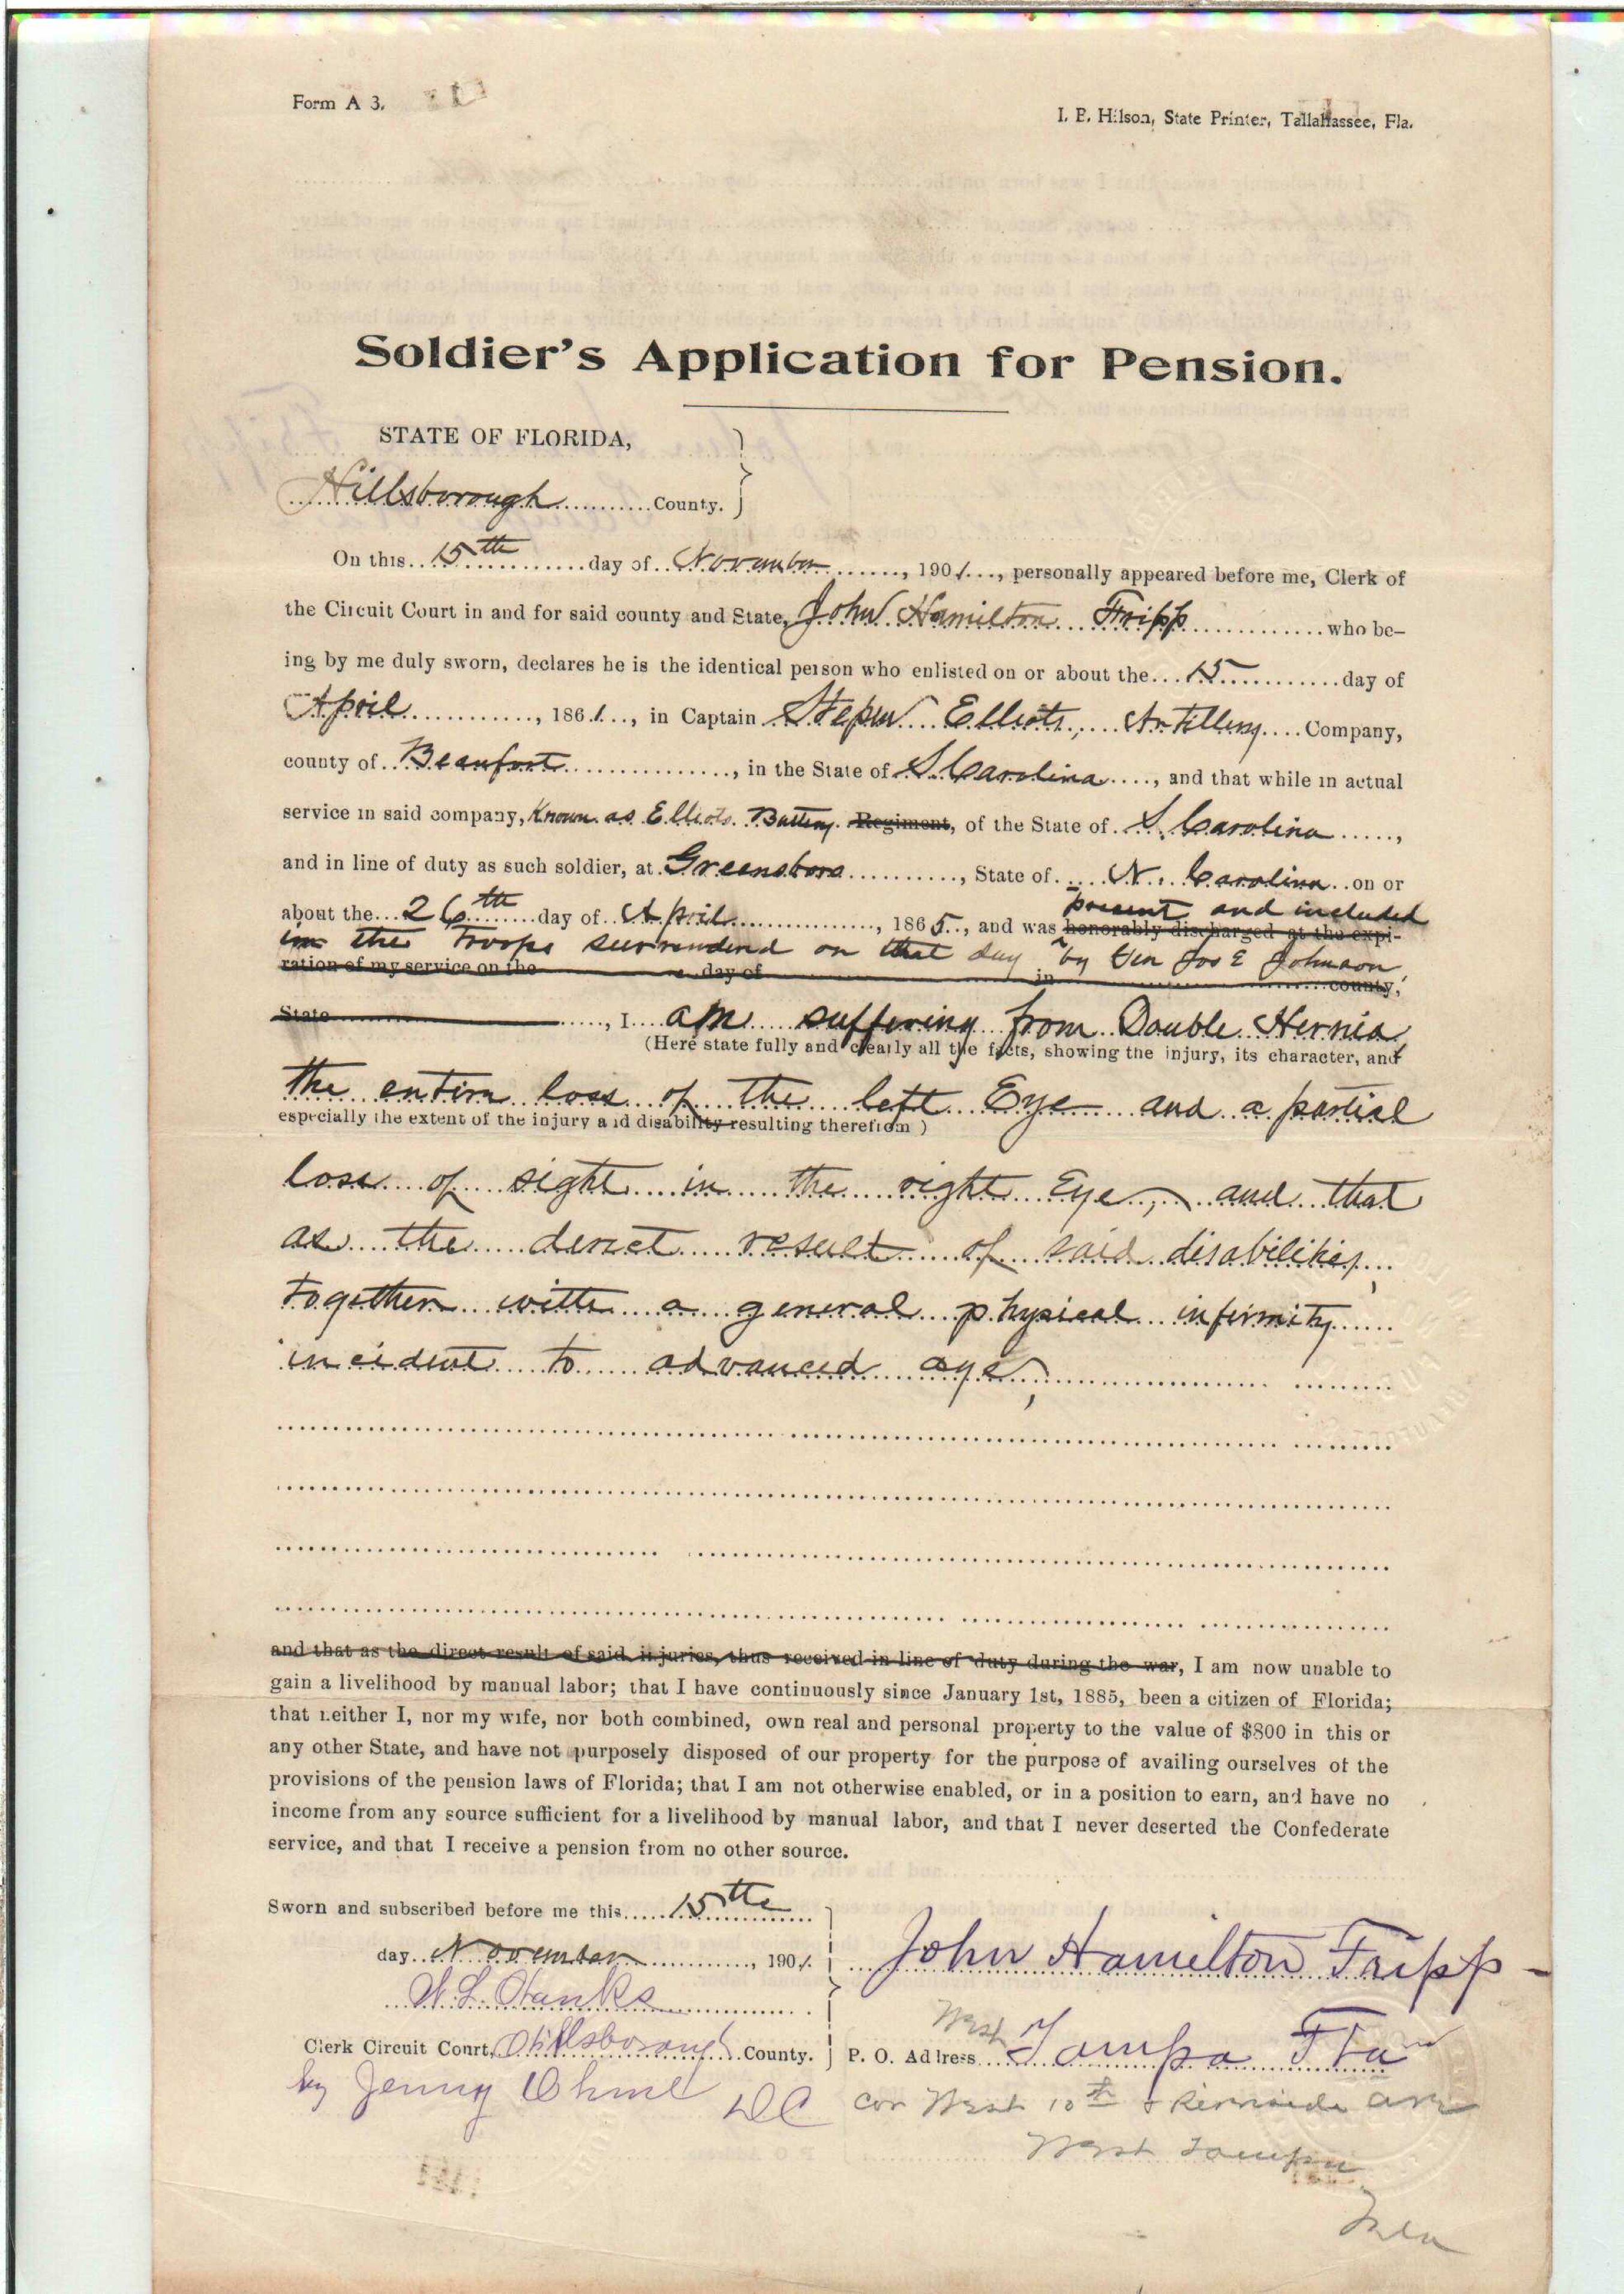 Form A 3.
I. B. Hilson, State Printer, Tallahassee, Fla.
Soldier's Application for Pension.
STATE OF FLORIDA,
Hillsborough County.
On this 15th day of November, 1901, personally appeared before me, Clerk of
the Circuit Court in and for said county and State, John Hamilton Fripp who be-
ing by me duly sworn, declares he is the identical person who enlisted on or about the 15 day of
April, 1861, in Captain Stephen Elliots, Artillery Company,
county of Beaufort, in the State of S Carolina, and that while in actual
service in said company, Known as Elliots Battery Regiment, of the State of S. Carolina,
and in line of duty as such soldier, at Greensboro, State of N. Carolina on or
present and included
about the 26th day of April, 1865, and was honorably discharged at the expi-
in the Troops surrendered on that day by Gen Jos E Johnson,
ration of my service on the day of in county,
State, I am suffering from Double Hernia
(Here state fully and clearly all the facts, showing the injury, its character, and
the entire loss of the left Eye and a partial
especially the extent of the injury and disability resulting therefrom)
loss of sight in the right Eye, and that
as the direct result of said disabilities,
together with a general physical infirmity
incident to advanced age,
and that as the direct result of said injuries, thus received in line of duty during the war, I am now unable to
gain a livelihood by manual labor; that I have continuously since January 1st, 1885, been a citizen of Florida;
that neither I, nor my wife, nor both combined, own real and personal property to the value of $800 in this or
any other State, and have not purposely disposed of our property for the purpose of availing ourselves of the
provisions of the pension laws of Florida; that I am not otherwise enabled, or in a position to earn, and have no
income from any source sufficient for a livelihood by manual labor, and that I never deserted the Confederate
service, and that I receive a pension from no other source.
Sworn and subscribed before me this 15th
day November, 1901.
John Hamilton Fripp
W. L. Hanks
West
Clerk Circuit Court, Hillsborough County.
P. O. Address Tampa Fla
by Jenny DC
Cor West 10th & Riverside Ave
West Tampa
Fla